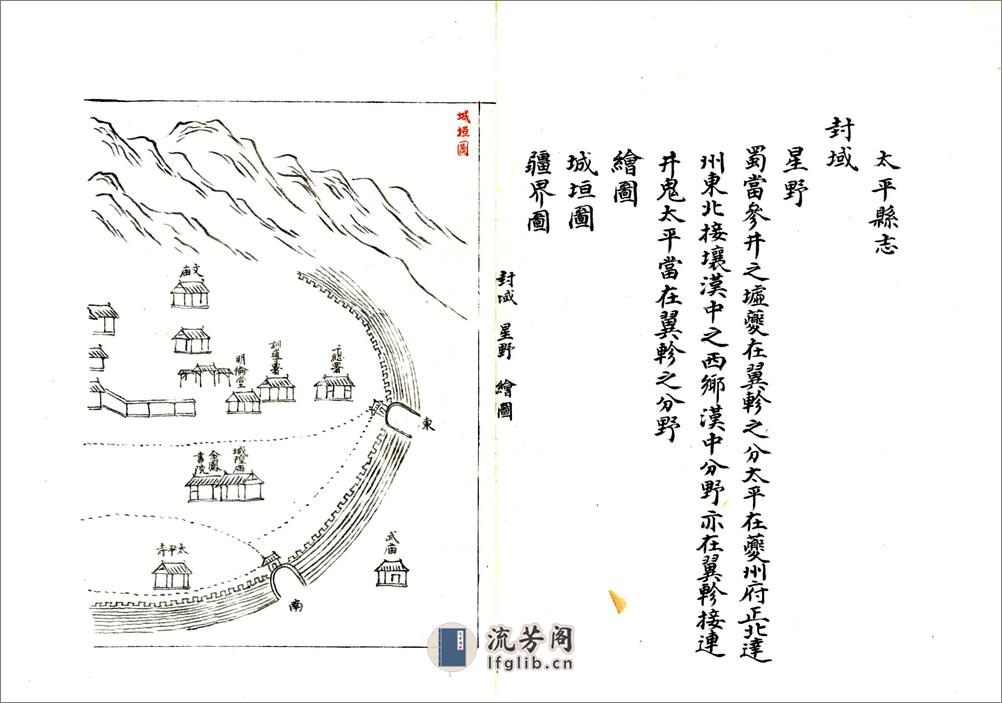 太平縣志
封域
星野
蜀當參井之墟夔在翼軫之分太平在夔州府正北達
州東北接壤漢中之西鄉漢中分野亦在翼軫接連
井鬼太平當在翼軫之分野
繪圖
城垣圖
疆界圖
封域 星野 繪圖
城垣圖
文庙
千總署
訓導署
明倫堂
東
城隍庙
金鳳
書院
武庙
太平寺
南
流芳阁
lfglib.cn